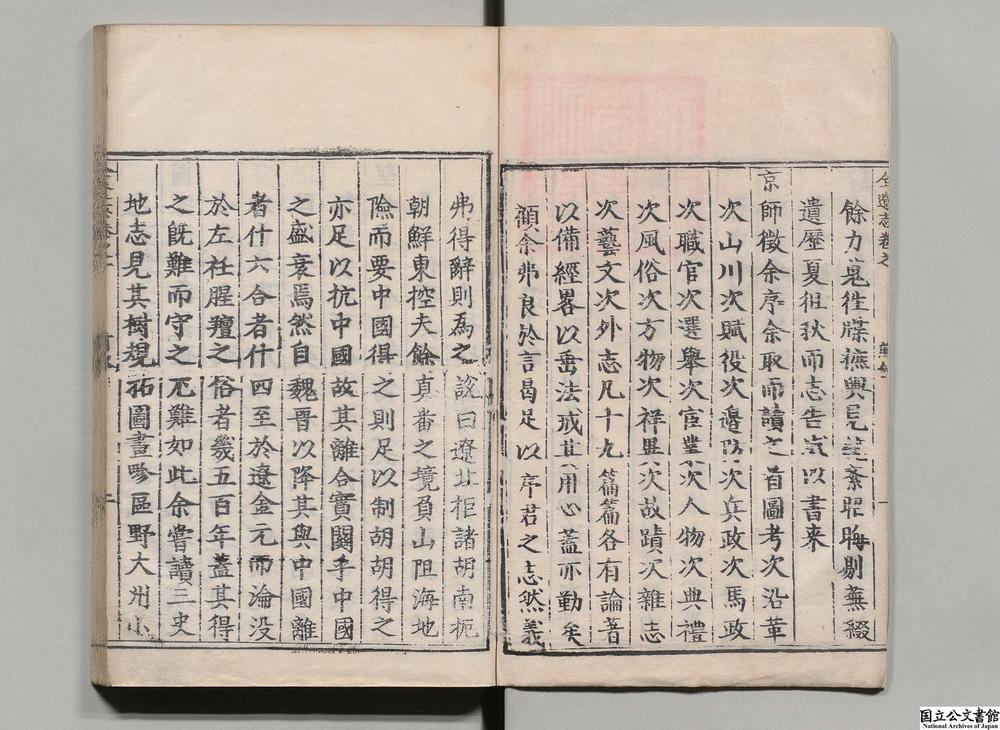 全遼志卷之
餘力蒐往牒撫輿見述紊昭晦剔蕪綴
遺歷夏徂秋而志告成以書來
京師徵余序余取而讀之首圖考次沿革
次山川次賦役次邊防次兵政次馬政
次職官次選舉次宦業次人物次典禮
次風俗次方物次祥異次故蹟次雜志
次藝文次外志凡十九篇篇各有論著
以備經畧以垂法戒其用心蓋亦勤矣
顧余弗良於言曷足以序君之志然義
弗得辭則為之說曰遼北拒諸胡南扼
朝鮮東控夫餘真番之境負山阻海地
險而要中國得之則足以制胡胡得之
亦足以抗中國故其離合實關乎中國
之盛衰焉然自魏晉以降其與中國離
者什六合者什四至於遼金元而淪沒
於左衽腥羶之俗者幾五百年蓋其得
之旣難而守之不難如此余嘗讀三史
地志見其樹規拓圖畫畛區野大州小
国立公文書館
National Archives of Japan